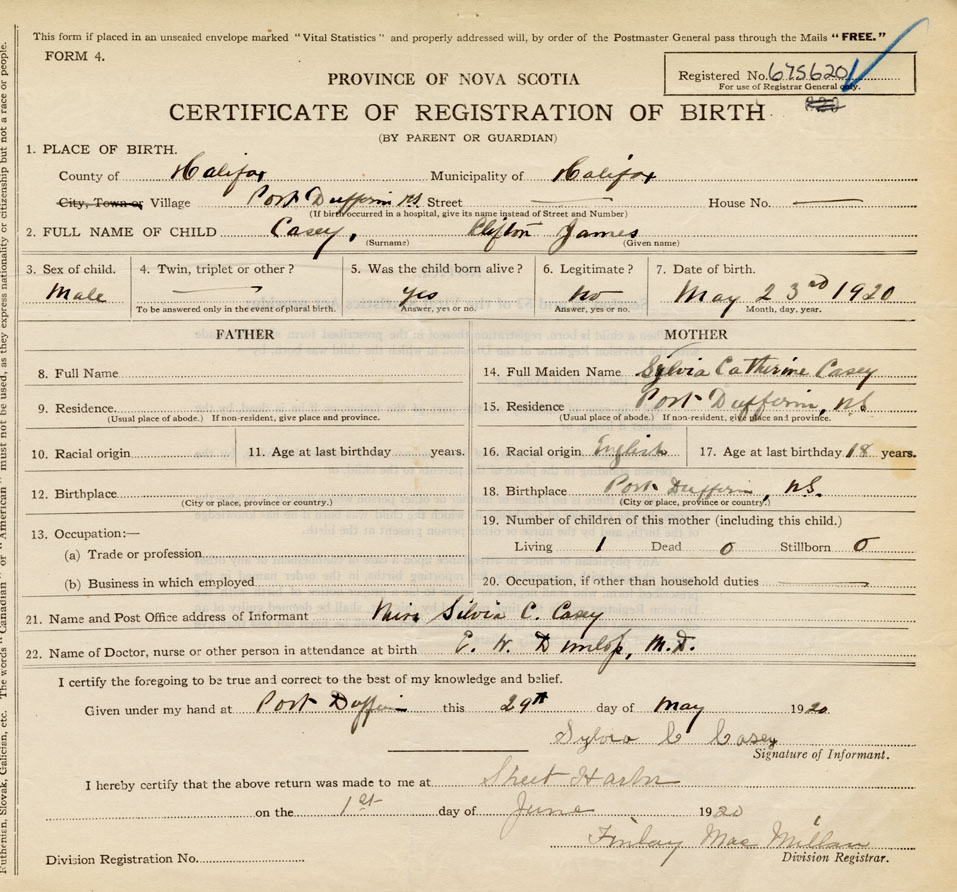 This form if placed in an unsealed envelope marked "Vital Statistics" and properly addressed will, by order of the Postmaster General pass through the Mails "FREE."
FORM 4.
Registered No. 675620
For use of Registrar General only.
PROVINCE OF NOVA SCOTIA
CERTIFICATE OF REGISTRATION OF BIRTH
(BY PARENT OR GUARDIAN)
1. PLACE OF BIRTH.
County of Halifax Municipality of Halifax
City, Town or Village Port Dufferin NS Street House No.
(If birth occurred in a hospital, give its name instead of Street and Number)
2. FULL NAME OF CHILD Casey, Clifton James
(Surname) (Given name)
3. Sex of child. 4. Twin, triplet or other? 5. Was the child born alive? 6. Legitimate? 7. Date of birth.
Male yes No May 23rd 1920
To be answered only in the event of plural birth. Answer, yes or no. Answer, yes or no. Month, day, year.
FATHER MOTHER
8. Full Name 14. Full Maiden Name Sylvia Catherine Casey
9. Residence. 15. Residence Port Dufferin, NS
(Usual place of abode.) If non-resident, give place and province. (Usual place of abode.) If non-resident, give place and province.
10. Racial origin 11. Age at last birthday years. 16. Racial origin English 17. Age at last birthday 18 years.
12. Birthplace 18. Birthplace Port Dufferin, NS.
(City or place, province or country.) (City or place, province or country.)
13. Occupation:— 19. Number of children of this mother (including this child.)
(a) Trade or profession Living 1 Dead 0 Stillborn 0
(b) Business in which employed 20. Occupation, if other than household duties
21. Name and Post Office address of Informant Miss Silvia C. Casey
22. Name of Doctor, nurse or other person in attendance at birth E. W. Dunlop, M.D.
I certify the foregoing to be true and correct to the best of my knowledge and belief.
Given under my hand at Port Dufferin this 29th day of May 1920
Sylvia C Casey
Signature of Informant.
I hereby certify that the above return was made to me at Sheet Harbor
on the 1st day of June 1920
Finlay MacMillan
Division Registration No. Division Registrar.
Ruthenian, Slovak, Galician, etc. The words "Canadian" or "American" must not be used, as they express nationality or citizenship but not a race or people.